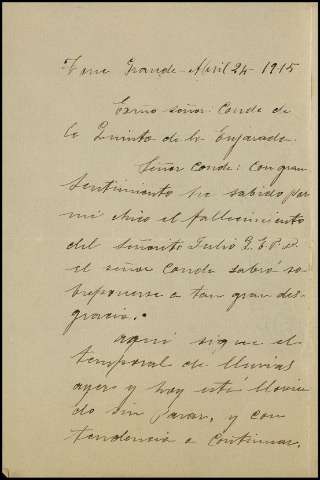 Grande Abril 24-1915
Exmo señor Conde de
la Quinta de la Enjarada.
Señor Conde: Con gran
sentimiento he sabido por
mi chico el fallecimiento
del señorito Julio Q.E.P.D.
el señor Conde sabrá so-
breponerse a tan gran des-
gracia.
Aqui sigue el
temporal de lluvias
ayer y hoy está llovien
do sin parar, y con
tendencia a continuar,